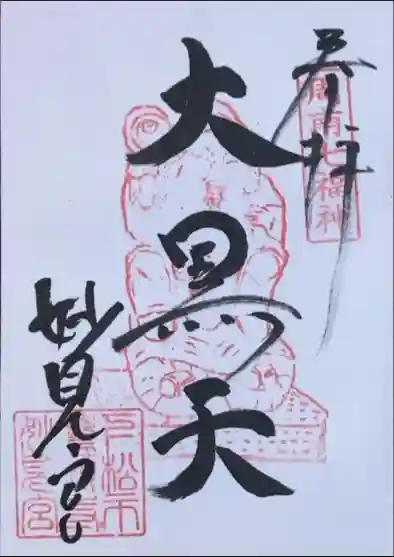 奉拝
周南七福神
大黒天
妙見宮
下松市
妙見宮